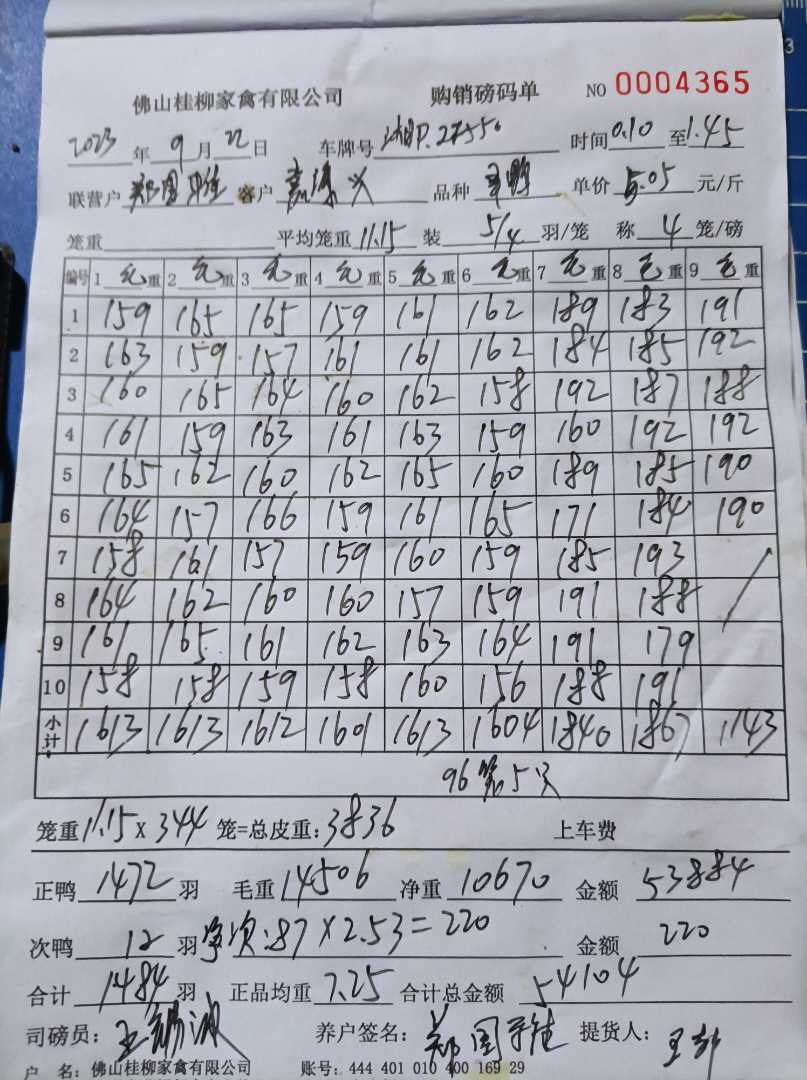 佛山桂柳家禽有限公司 购销磅码单 NO 0004365
2023 年 9 月 22 日 车牌号 27550 时间 0.10 至 1.45
联营户 郑国 客户 品种 单价 5.05 元/斤
笼重 平均笼重 11.15 装 5/4 羽/笼 称 4 笼/磅
编号 1 毛 重 2 毛 重 3 毛 重 4 毛 重 5 毛 重 6 毛 重 7 毛 重 8 毛 重 9 毛 重
1 159 165 165 159 161 162 189 183 191
2 163 159 157 161 161 162 184 185 192
3 160 165 164 160 162 158 192 187 188
4 161 159 163 161 163 159 160 192 192
5 165 162 160 162 165 160 189 185 190
6 164 157 166 159 161 165 171 184 190
7 158 161 157 159 160 159 185 193
8 164 162 160 160 157 159 191 188
9 161 165 161 162 163 164 191 179
10 158 158 159 158 160 156 188 191
小计 1613 1613 1612 1601 1613 1604 1840 1867 1143
96 第5次
笼重 11.15 x 344 笼=总皮重: 3836 上车费
正鸭 1472 羽 毛重 14506 净重 10670 金额 53884
次鸭 12 羽 :87 x 2.53 = 220 金额 220
合计 1484 羽 正品均重 7.25 合计总金额 54104
司磅员: 王锡波 养户签名: 郑国 提货人: 王
户 名: 佛山桂柳家禽有限公司 账号: 444 401 010 400 169 29